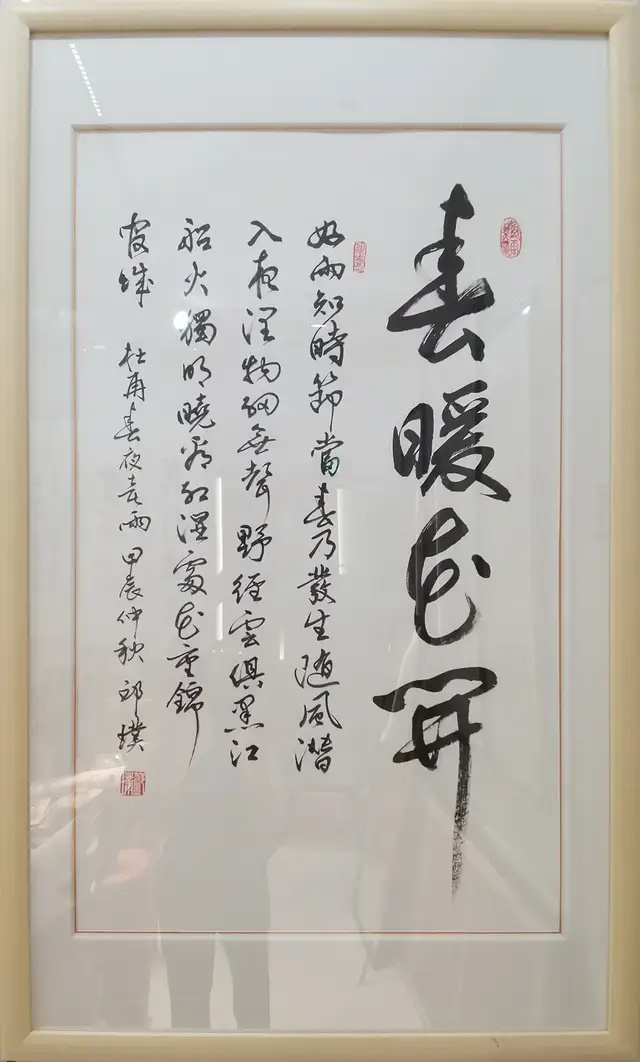 春暖花開
好雨知時節當春乃發生随風潛
入夜潤物細無聲野徑雲俱黑江
船火獨明曉看紅濕處花重錦
官城 杜甫春夜喜雨甲辰仲秋邱璞